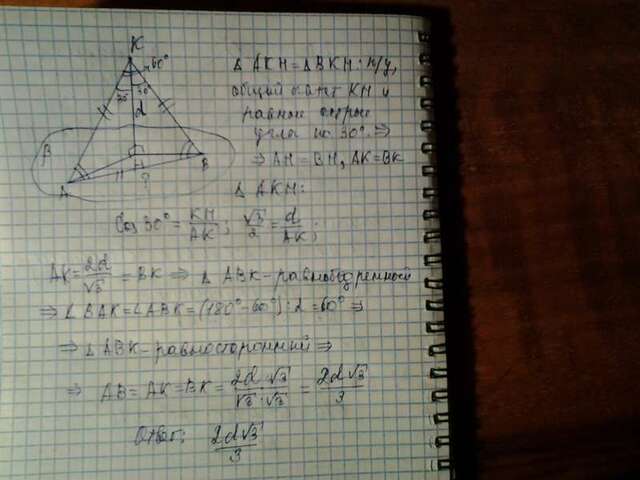 K
60°
30° 30°
d
β
A H ? B
Δ AKH = Δ BKH : п/у,
общий катет KH и
равные острые
углы по 30° ⇒
⇒ AH = BH, AK = BK
Δ AKH:
Cos 30° = KH/AK ; √3/2 = d/AK ;
AK = 2d/√3 = BK ⇒ Δ ABK - равнобедренный
⇒ ∠ BAK = ∠ ABK = (180° - 60°) : 2 = 60° ⇒
⇒ Δ ABK - равносторонний ⇒
⇒ AB = AK = BK = 2d·√3/√3·√3 = 2d√3/3
Ответ: 2d√3/3